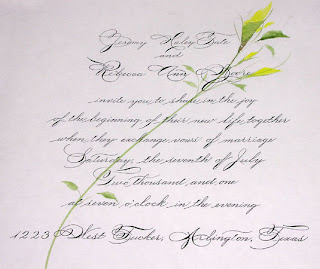 Jeremy Haley Tate
and
Rebecca Ann Moore
invite you to share in the joy
of the beginning of their new life together
when they exchange vows of marriage
Saturday, the seventh of July
Two thousand and one
at seven o'clock in the evening
1223 West Tucker, Arlington, Texas